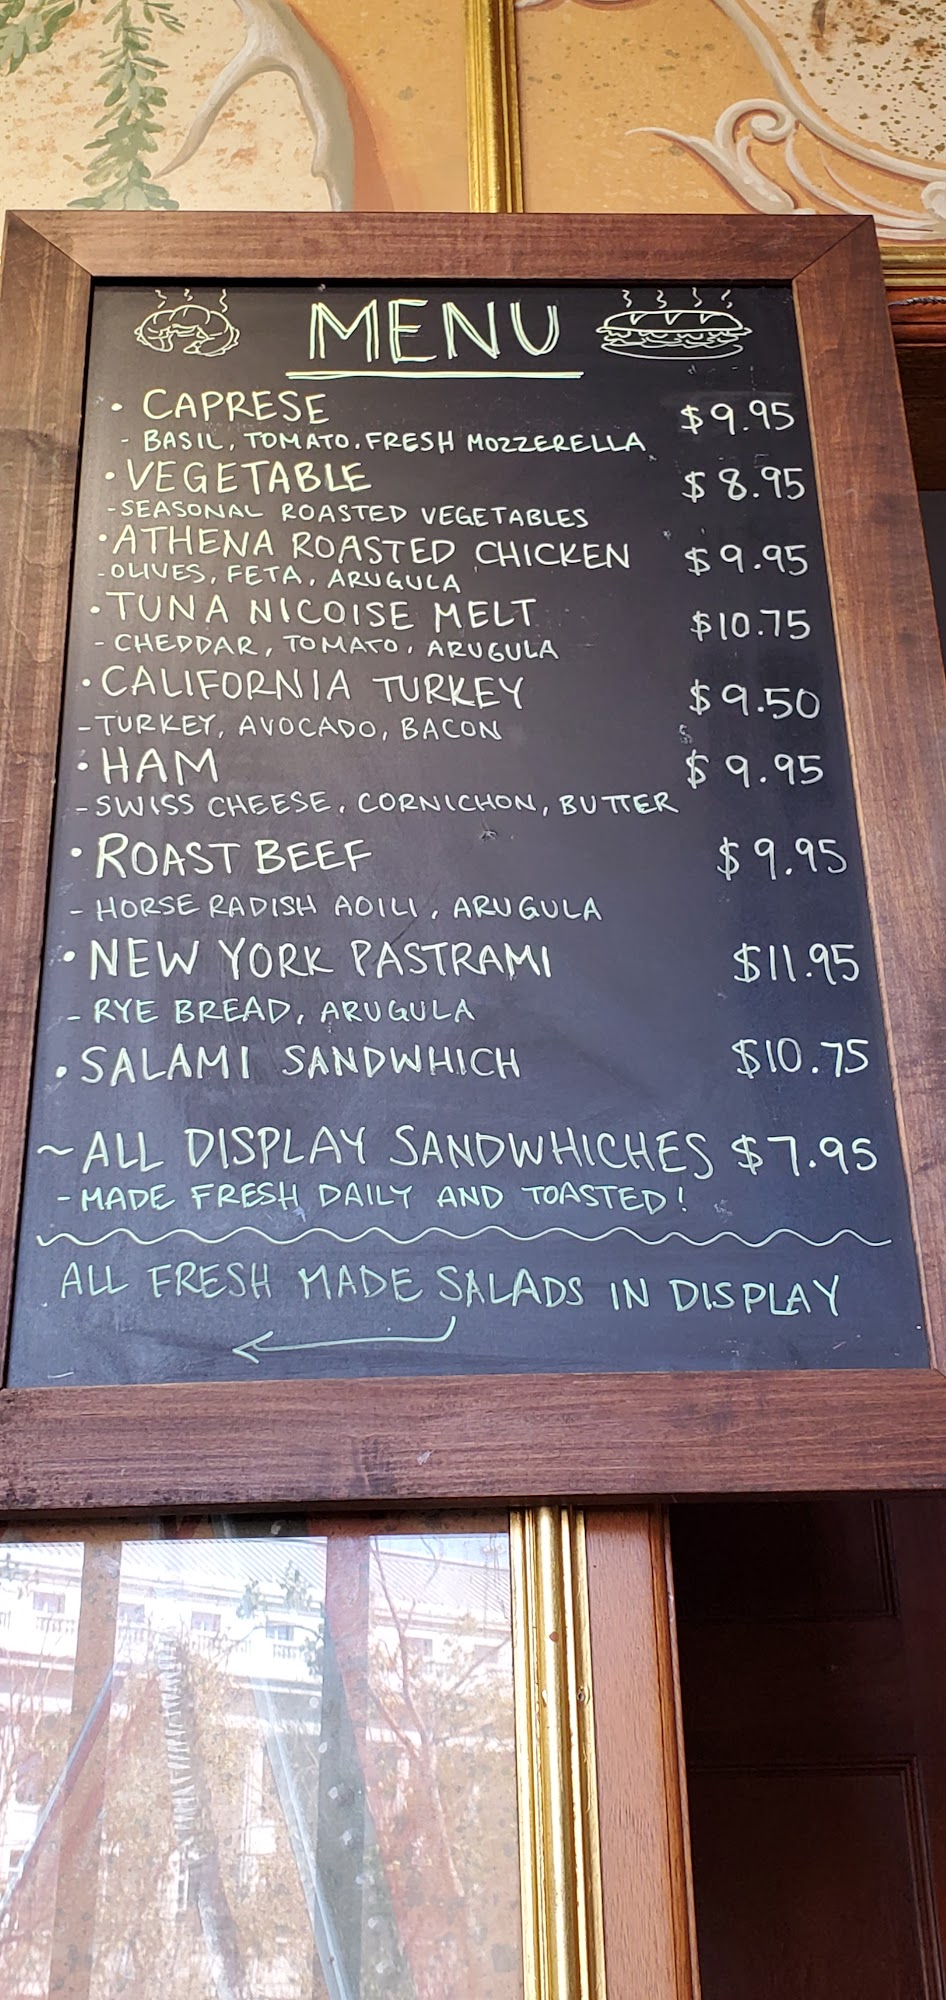 MENU
• CAPRESE $9.95
- BASIL, TOMATO, FRESH MOZZERELLA
• VEGETABLE $8.95
- SEASONAL ROASTED VEGETABLES
• ATHENA ROASTED CHICKEN $9.95
- OLIVES, FETA, ARUGULA
• TUNA NICOISE MELT $10.75
- CHEDDAR, TOMATO, ARUGULA
• CALIFORNIA TURKEY $9.50
- TURKEY, AVOCADO, BACON
• HAM $9.95
- SWISS CHEESE, CORNICHON, BUTTER
• ROAST BEEF $9.95
- HORSE RADISH AOILI, ARUGULA
• NEW YORK PASTRAMI $11.95
- RYE BREAD, ARUGULA
• SALAMI SANDWHICH $10.75
~ ALL DISPLAY SANDWHICHES $7.95
- MADE FRESH DAILY AND TOASTED!
ALL FRESH MADE SALADS IN DISPLAY